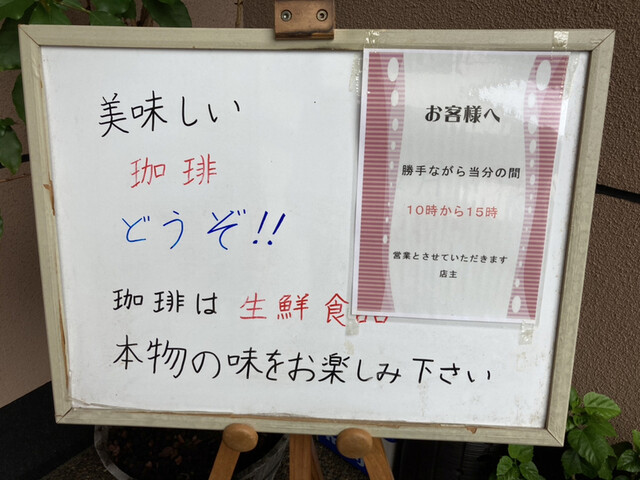 美味しい
珈琲
どうぞ!!
珈琲は 生鮮食品
本物の味をお楽しみ下さい
お客様へ
勝手ながら当分の間
10時から15時
営業とさせていただきます
店主